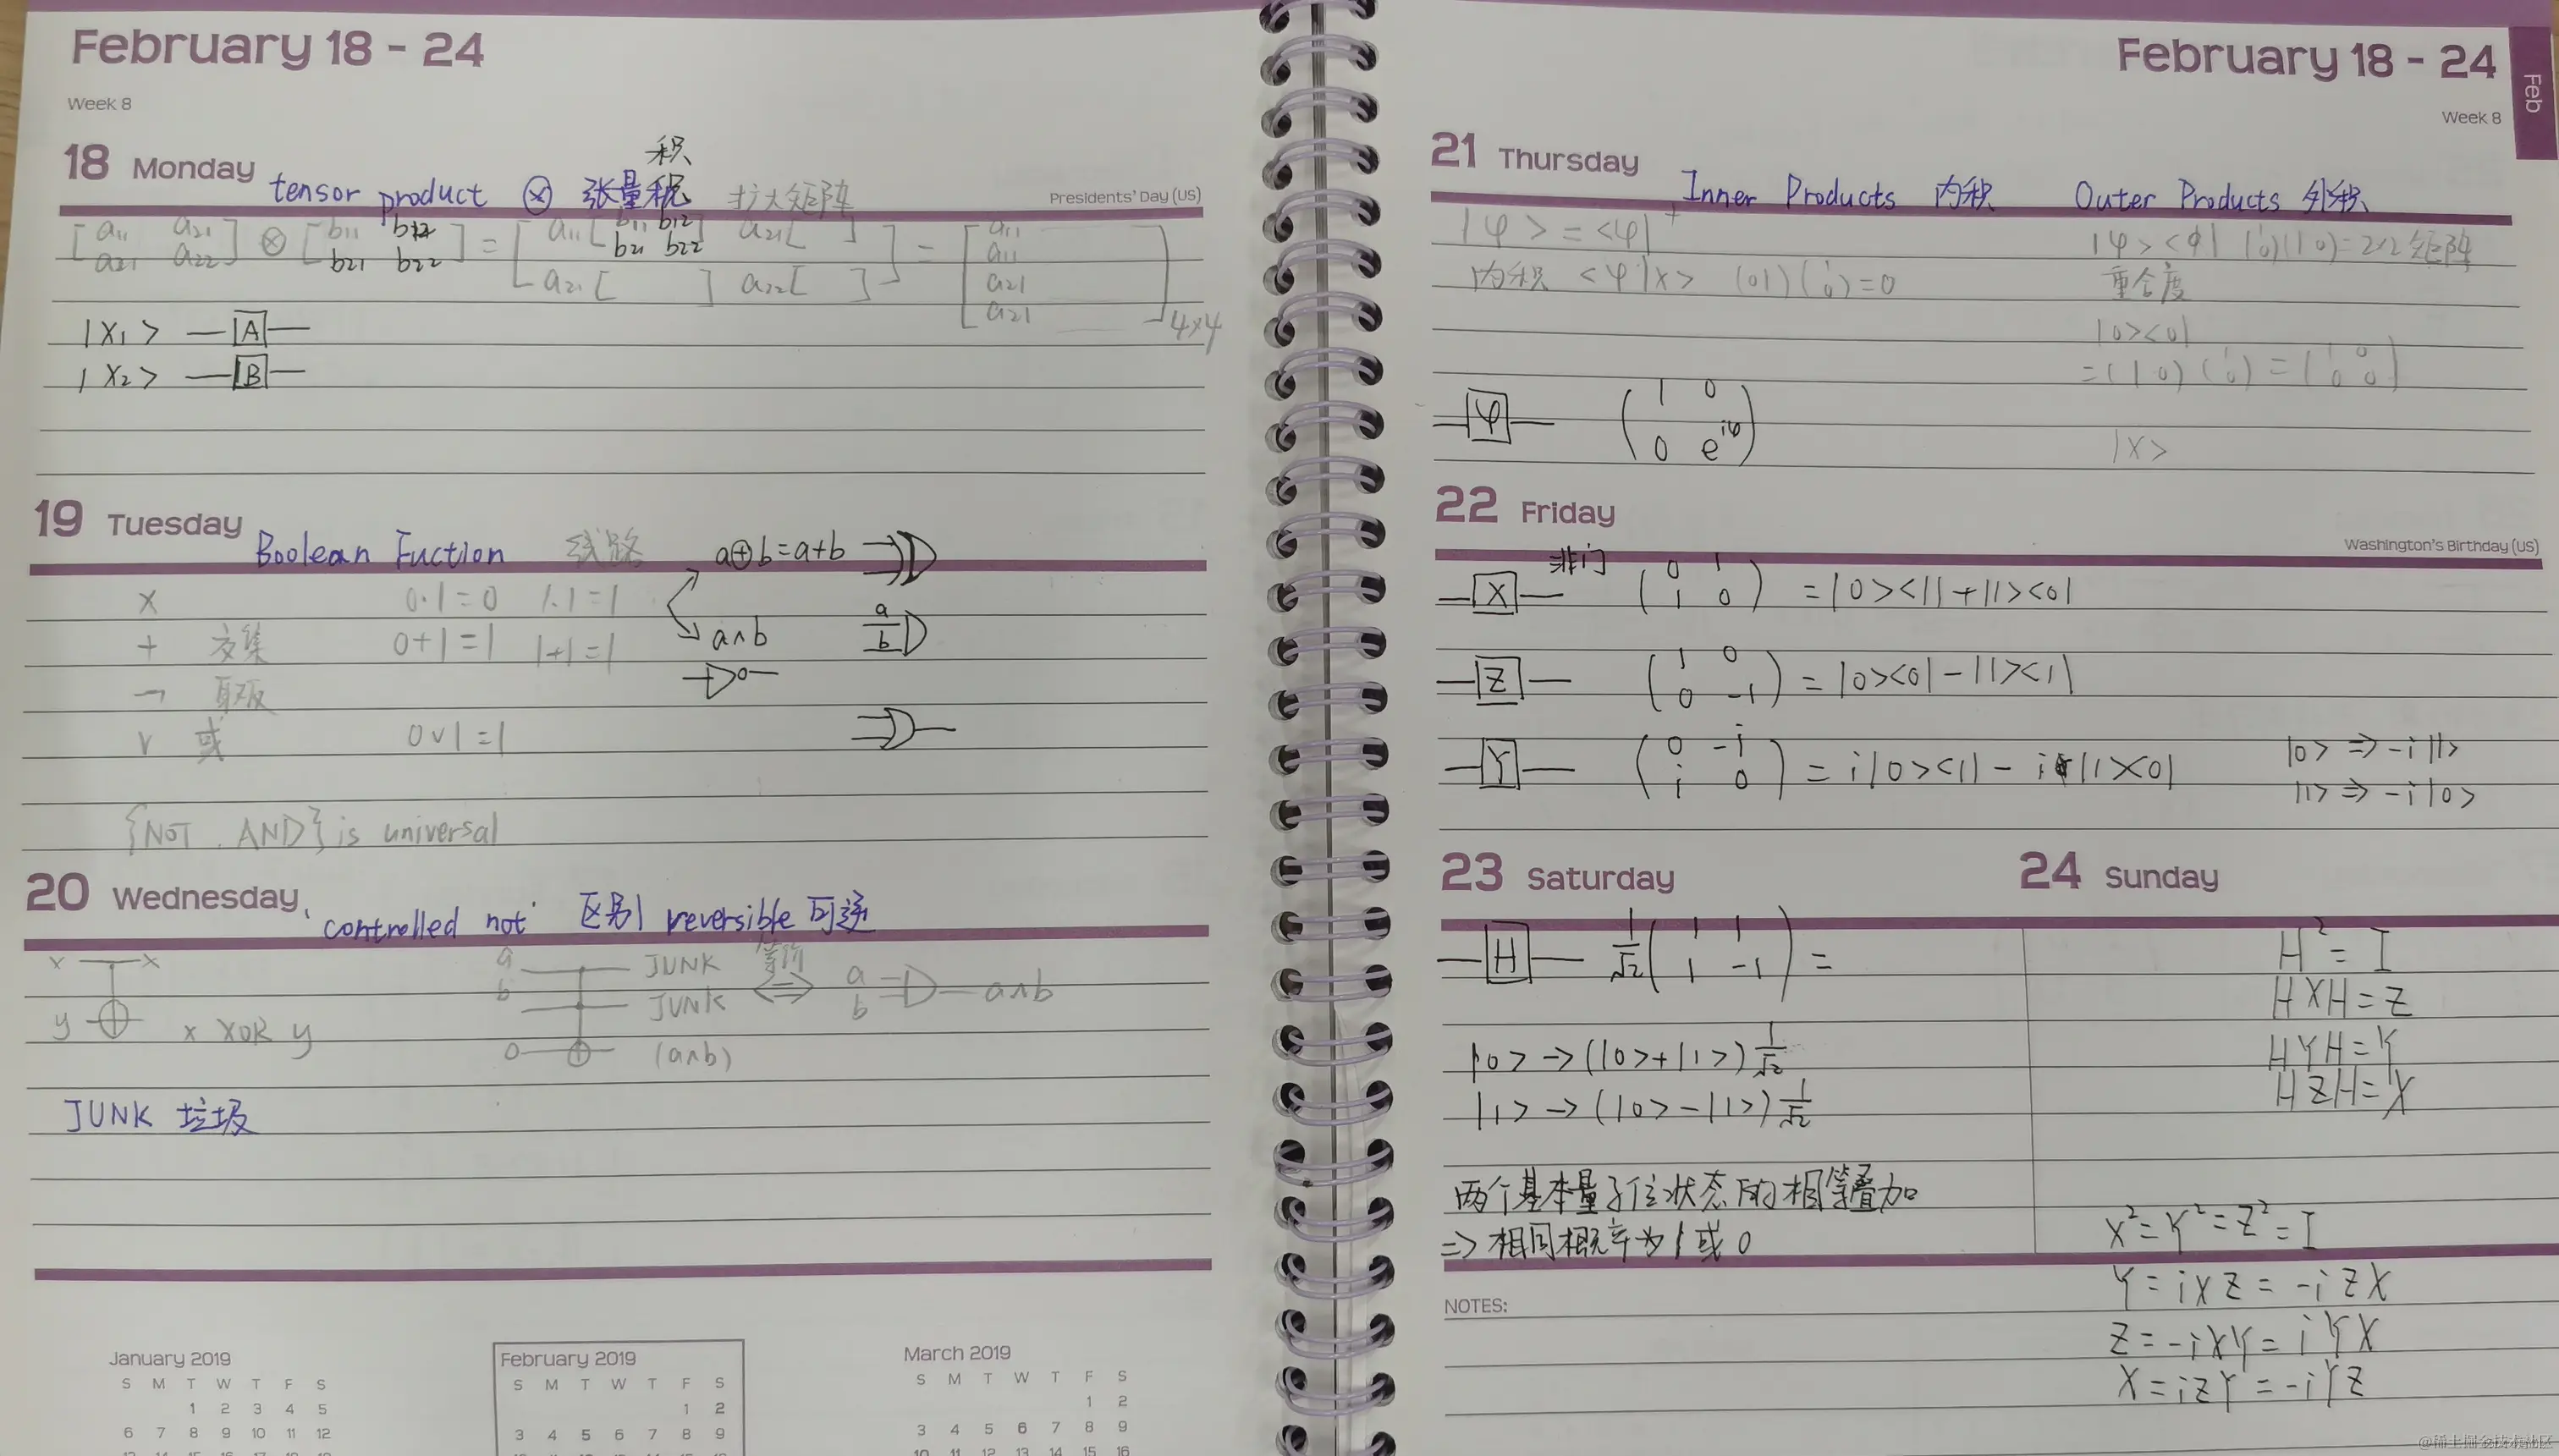 February 18 - 24
Week 8
18 Monday
Presidents' Day (US)
积
tensor product ⊗ 张量积 扩大矩阵
[a11 a21
a21 a22] ⊗ [b11 b12
b21 b22] = [a11[b11 b12
b21 b22] a21[ ]
a21[ ] a22[ ]] = [a11
a11
a21
a21]4×4
|X1> —[A]—
|X2> —[B]—
19 Tuesday
Boolean Fuction 线路 a⊕b=a+b
× 0·1=0 1·1=1
a∧b
a
b
+ 交集 0+1=1 1+1=1
¬ 取反
∨ 或 0∨1=1
{NOT, AND} is universal
20 Wednesday
controlled not 区别 reversible 可逆
x x
y x XOR y
a JUNK
b JUNK
0 (a∧b)
等价
⇔
a
b
a∧b
JUNK 垃圾
January 2019
S M T W T F S
1 2 3 4 5
6 7 8 9 10 11 12
February 2019
S M T W T F S
1 2
3 4 5 6 7 8 9
March 2019
S M T W T F S
1 2
3 4 5 6 7 8 9
10 11 12 13 14 15 16
February 18 - 24
Week 8
Feb
21 Thursday
Inner Products 内积 Outer Products 外积
|φ> = <φ|+
内积 <φ|x> (01)(1
0)=0
|φ><φ| (1
0)(1 0)=2×2矩阵
重合度
|0><0|
=(1 0)(1
0)=(1 0
0 0)
|X>
—[φ]— (1 0
0 e^iφ)
22 Friday
Washington's Birthday (US)
—[X]— 非门 (0 1
1 0) = |0><1|+|1><0|
—[Z]— (1 0
0 -1) = |0><0|-|1><1|
—[Y]— (0 -i
i 0) = i|0><1| - i|1><0|
|0> ⇒ -i|1>
|1> ⇒ -i|0>
23 Saturday
—[H]— 1/√2(1 1
1 -1) =
|0> → (|0>+|1>)1/√2
|1> → (|0>-|1>)1/√2
两个基本量子位状态的相等叠加
⇒ 相同概率为1或0
NOTES:
24 Sunday
H²=I
HXH=Z
HYH=Y
HZH=X
X²=Y²=Z²=I
Y=iXZ=-iZX
Z=-iXY=iYX
X=iZY=-iYZ
@稀土掘金技术社区